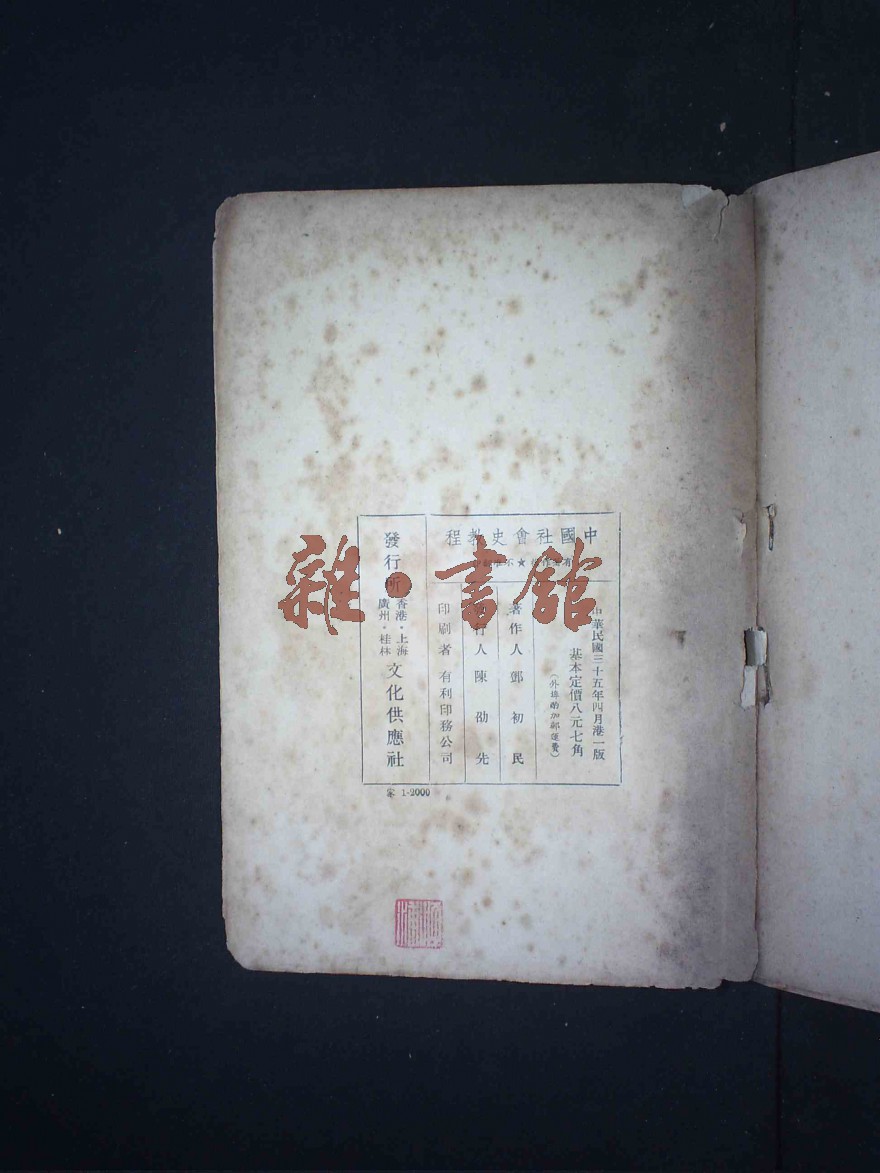 中國社會史教程
中華民國三十五年四月港一版
基本定價八元七角
(外埠酌加郵運費)
著作人 鄧初民
行人 陳劭先
印刷者 有利印務公司
發行所
香港・上海
廣州・桂林
文化供應社
1-2000
雜・書館